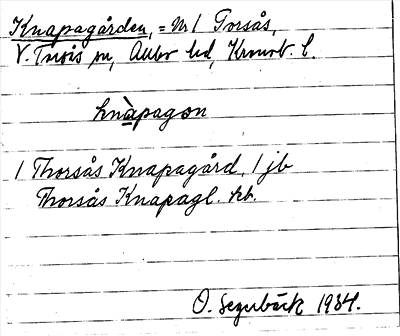 Knapagården, = Nr 1 Torsås,
V. Torsås sn, Allbo hd, Kronob. l.
knàpagon
1 Thorsås Knapagård, 1 jb
Thorsås Knapagl. kb.
O. Segerbäck 1934.